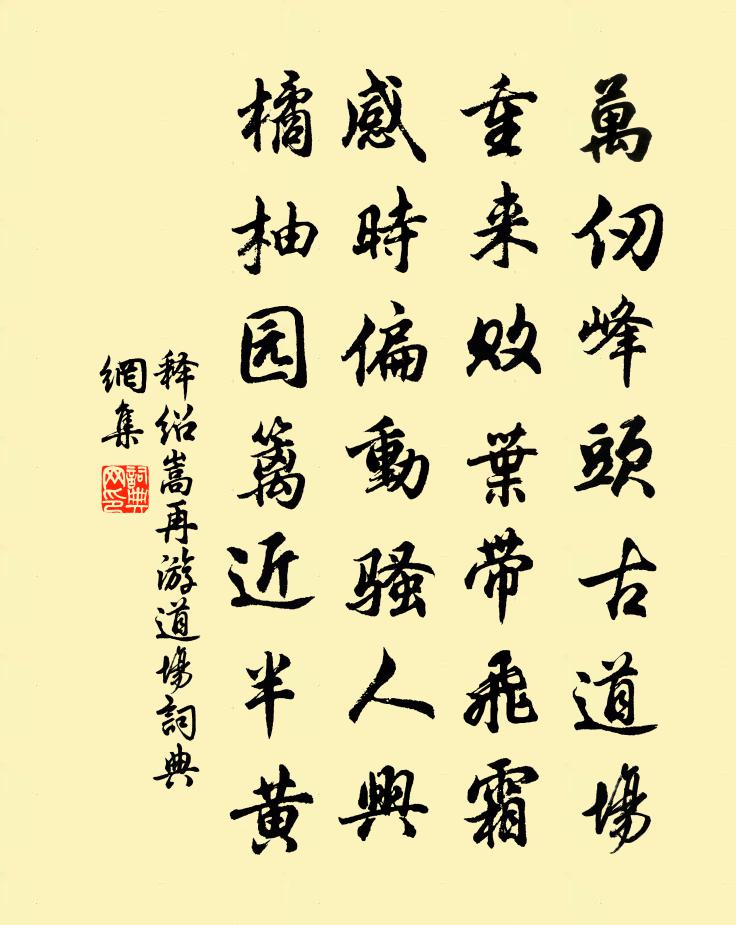 萬仞峰頭古道場
重来败葉帶飛霜
感時偏動騷人興
橘柚园籬近半黃
释绍嵩再游道場詞典
網集
詞典網印